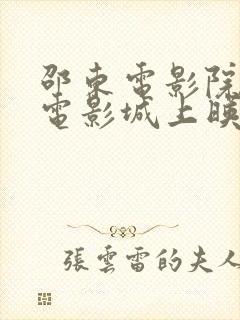 邵東電影院
電影城上映
張雲雷的夫人